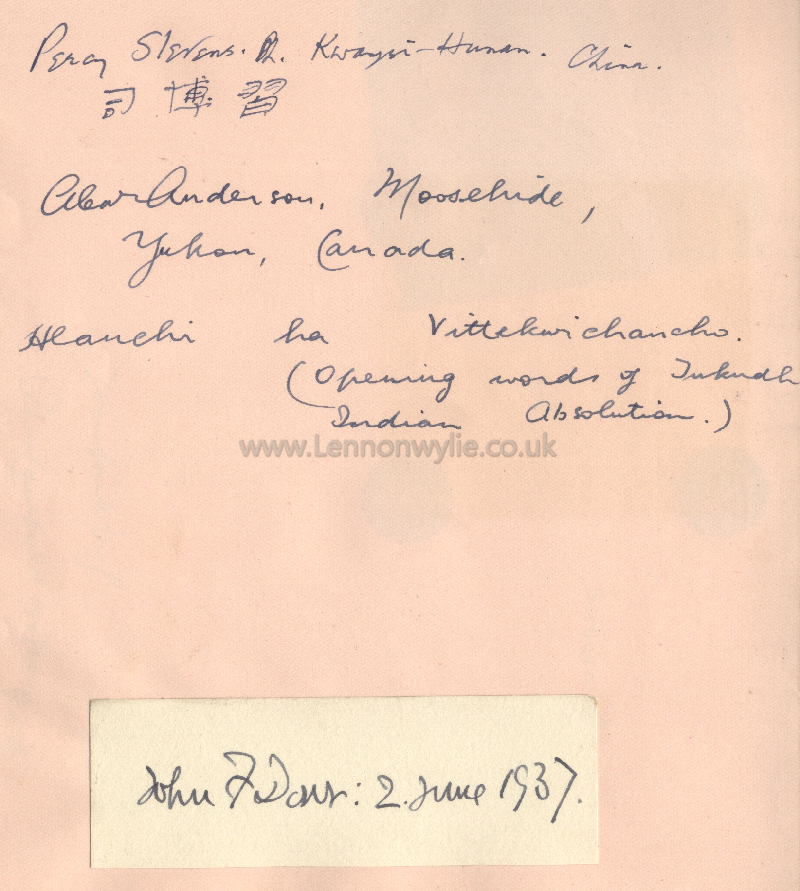 Percy Stevens. Bp. Kwangsi-Hunan. China.
司 博 習
Anderson, Moosehide,
Yukon, Canada.
ha Vittekwichancho.
(Opening words of Tukudh
Indian Absolution.)
www.Lennonwylie.co.uk
John F : 2. June 1937.